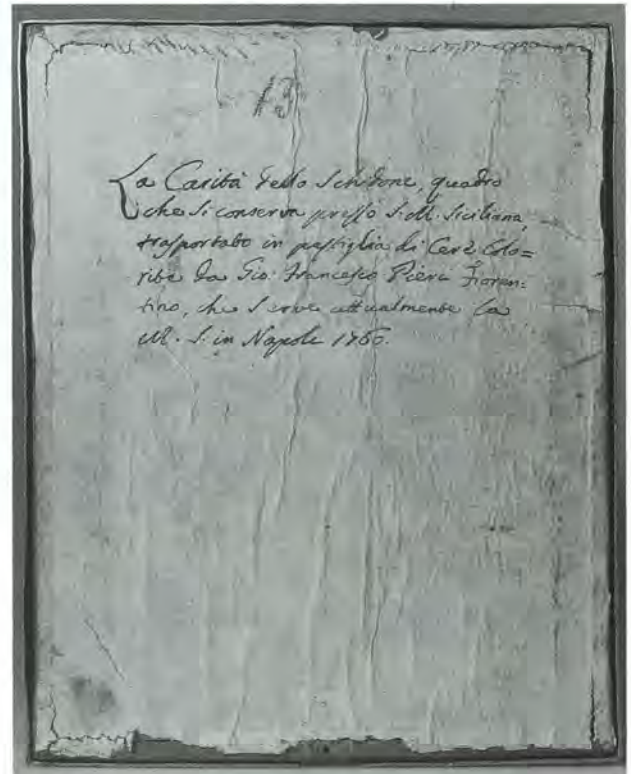 13
La Carità dello Schidone, quadro
che si conserva presso S. M. Siciliana,
trasportato in pastiglia di Cera Colo=
rita da Gio: Francesco Pieri Fioren=
tino, che serve attualmente la
M. S. in Napole 1760.